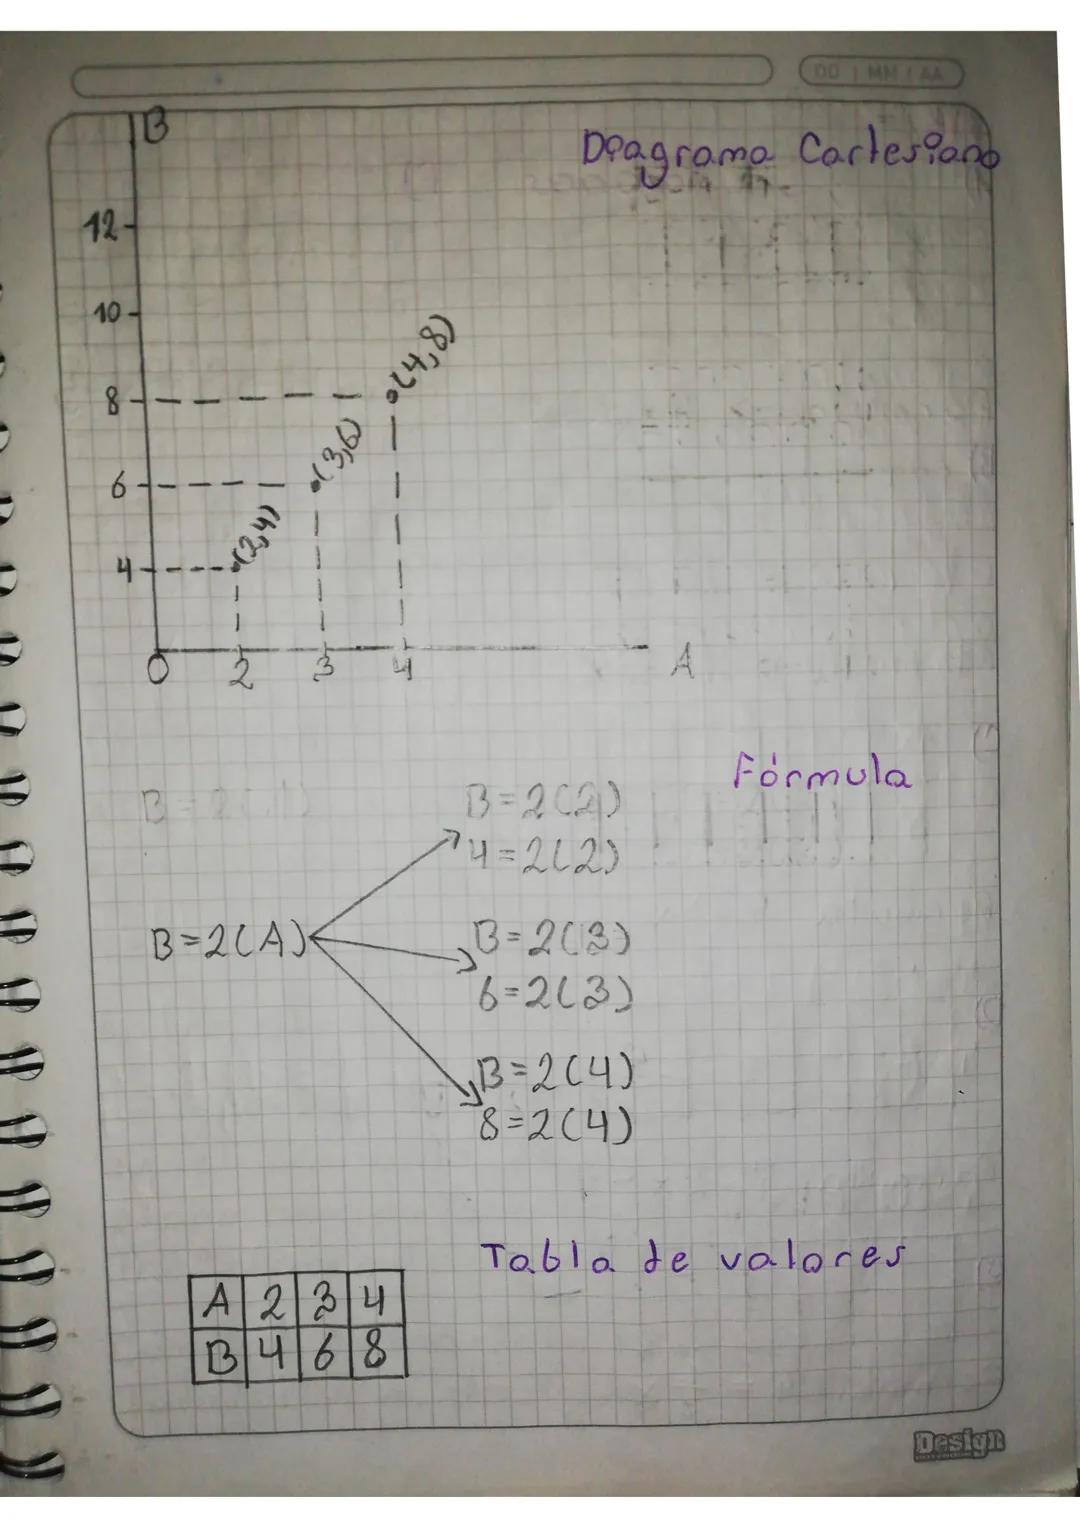 DD | MM | AA
B
Diagrama Cartesiano
12
10
8
(4,8)
6
(3,6)
4
(2,4)
0 2 3 4 A
Fórmula
B=2(2)
4=2(2)
B=2(A)
B=2(3)
6=2(3)
B=2(4)
8=2(4)
Tabla de valores
A 2 3 4
B 4 6 8
Design